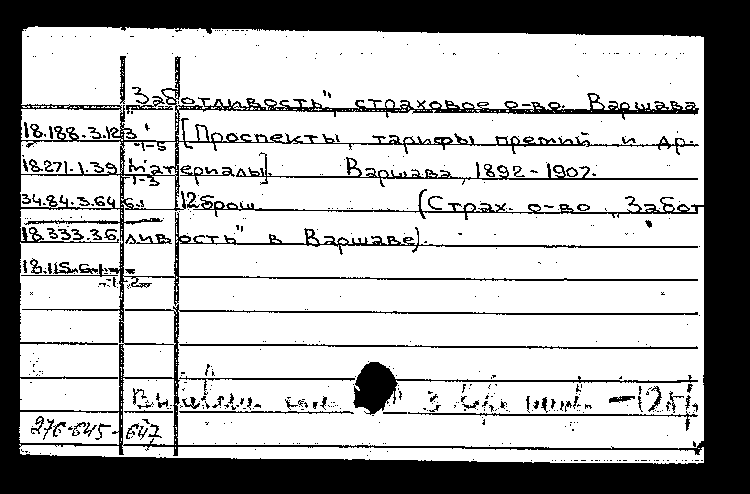 "Заботливость", страховое о-во. Варшава
18.188.3.123 [Проспекты, тарифы премий и др.
1-5
18.271.1.39 материалы]. Варшава, 1892-1907.
1-3
34.84.3.64 12 брош. (Страх. о-во "Забот
18.333.3.6 ливость" в Варшаве).
18.115.
1-2
3
276-645-647